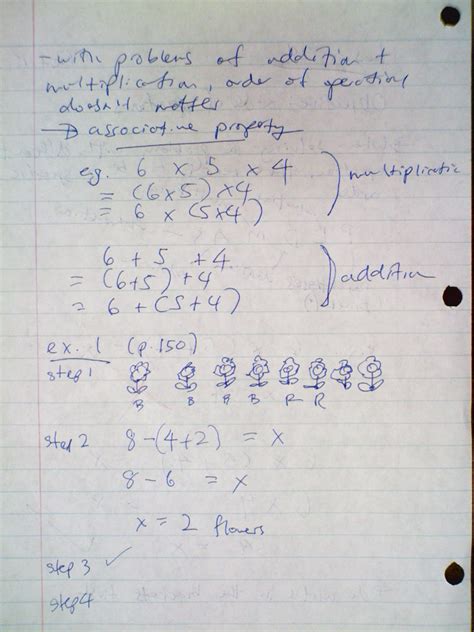 - with problems of addition +
multiplication, order of operations
doesn't matter
→ associative property
eg. 6 x 5 x 4
= (6x5) x4
= 6 x (5x4)
multiplicatio
6 + 5 + 4
= (6+5) + 4
= 6 + (5+4)
addition
ex. 1 (p.150)
step 1
B B B B R R
step 2 8-(4+2) = x
8 - 6 = x
x = 2 flowers
step 3 ✓
step 4